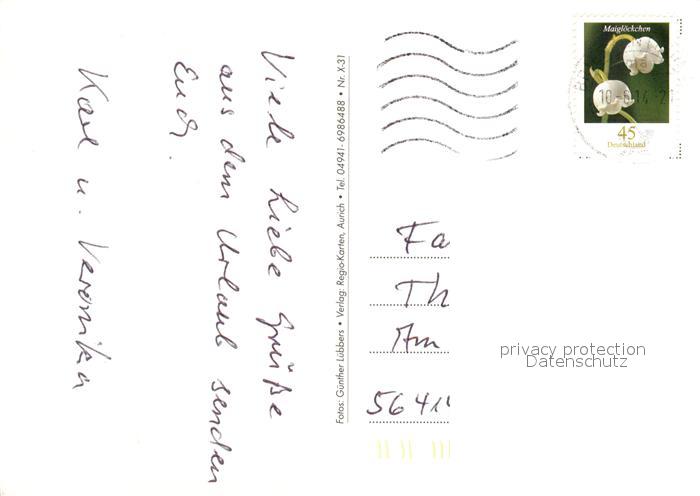 Viele liebe Grüße
aus dem Urlaub senden
Euch
Karl u. Veronika
Fotos: Günther Lübbers • Verlag: Regio-Karten, Aurich • Tel. 04941-6986488 • Nr. X-31
Maiglöckchen
45
Deutschland
Fa
Th
Am
privacy protection
Datenschutz